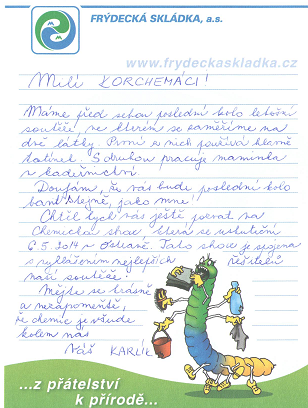 FRÝDECKÁ SKLÁDKA, a.s.
www.frydeckaskladka.cz
Milí KORCHEMÁCI!
Máme před sebou poslední kolo letošní
soutěže, ve kterém se zaměříme na
dvě látky. První z nich používá hlavně
tatínek. S druhou pracuje maminka
v kadeřnictví.
Doufám, že vás bude poslední kolo
bavit stejně, jako mne!
Chtěl bych vás ještě pozvat na
Chemickou show, která se uskuteční
6.5.2014 v Ostravě. Tato show je spojena
s vyhlášením nejlepších řešitelů
naší soutěže!
Mějte se krásně
a nezapomeňte,
že chemie je všude
kolem nás
Váš KARLÍK
...z přátelství
k přírodě...